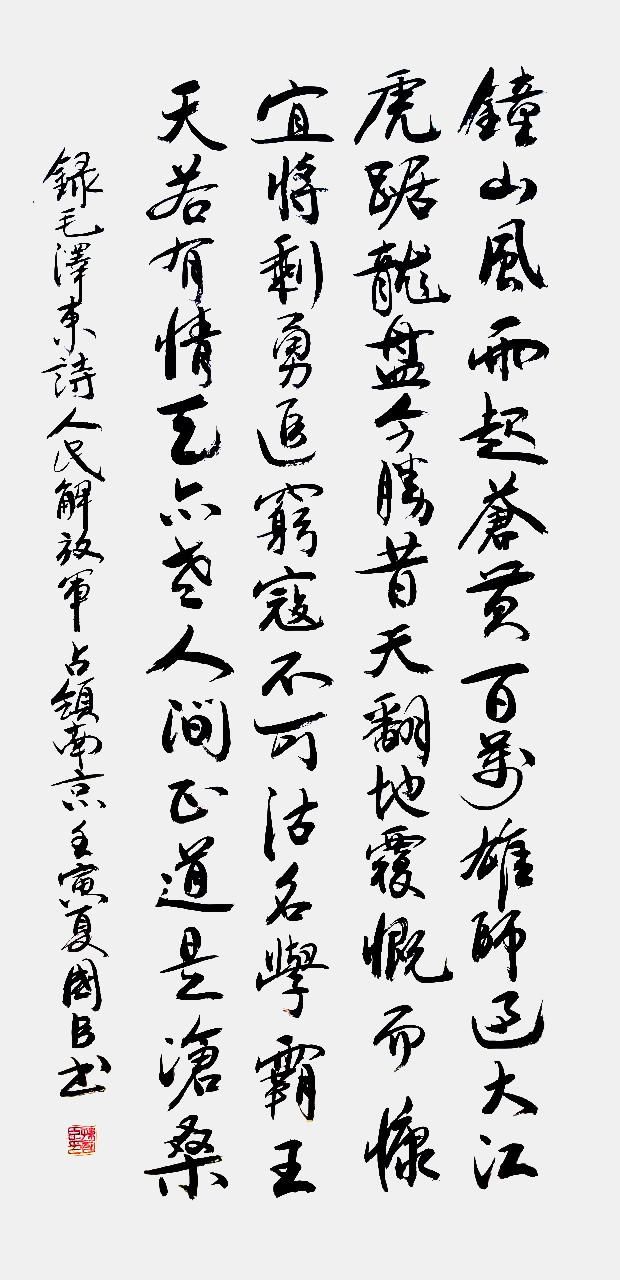 鐘山風雨起蒼黃百萬雄師過大江
虎踞龍盤今勝昔天翻地覆慨而慷
宜將剩勇追窮寇不可沽名學霸王
天若有情天亦老人間正道是滄桑
録毛澤東詩人民解放軍占領南京壬寅夏國臣书